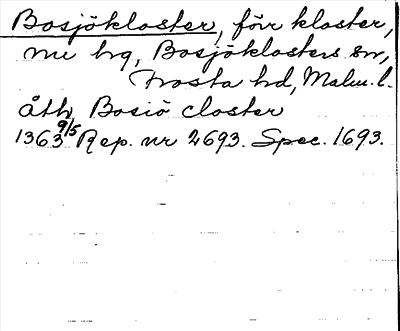 Bosjökloster, förr kloster,
nu hg, Bosjöklosters sn,
Frosta hd, Malm. l.
åth Bosiö closter
1363 9/5 Rep. nr 2693. Spec. 1693.